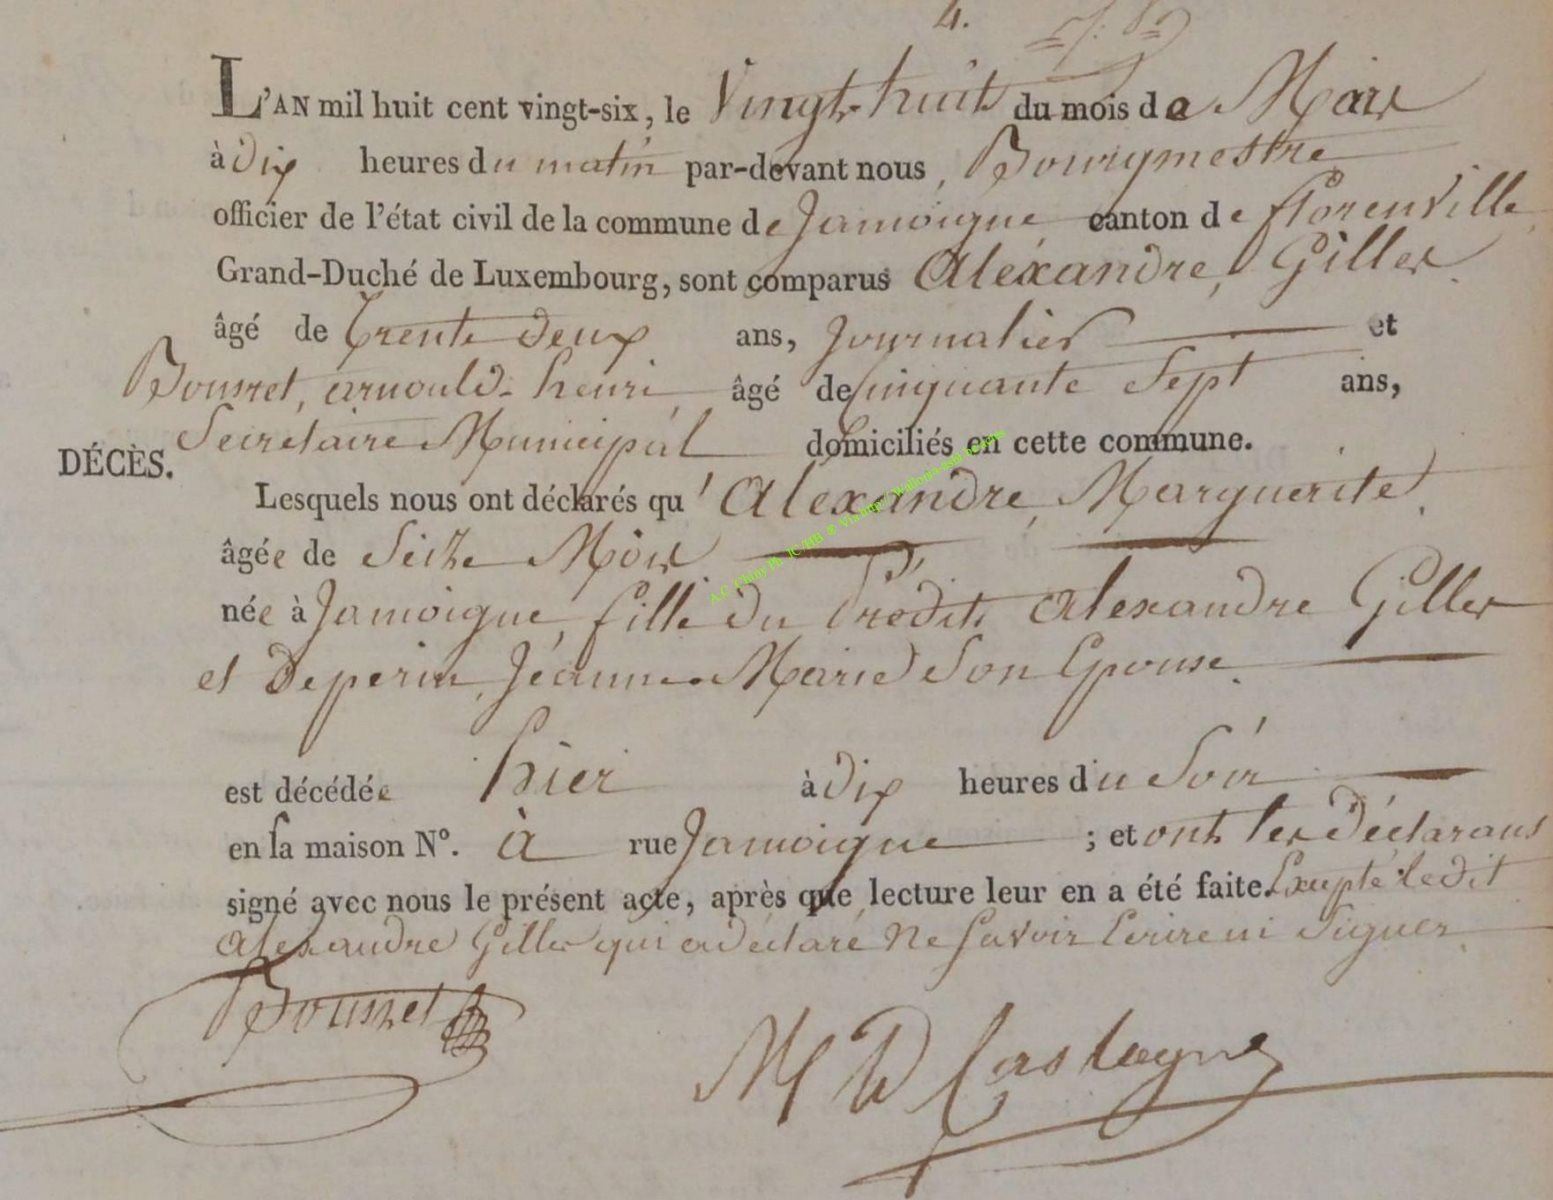 4.
L'AN mil huit cent vingt-six, le Vingt-huit du mois de Mars
à dix heures du matin par-devant nous, Bourgmestre
officier de l'état civil de la commune de Jamoigne, canton de florenville,
Grand-Duché de Luxembourg, sont comparus Alexandre, Gilles.
âgé de Trente deux ans, Journalier et
arnould-henri, âgé de Cinquante Sept ans,
Secretaire Municipal domiciliés en cette commune.
DÉCÈS.
Lesquels nous ont déclarés qu'Alexandre, Marguerite,
âgée de Seize Mois
née à Jamoigne, fille du Prédit Alexandre Gilles
et Deperin, Jeanne-Marie Son Epouse.
est décédée hier à dix heures du Soir
en sa maison N°. à rue Jamoigne ; et ont les déclarans
signé avec nous le présent acte, après que lecture leur en a été faite. Excepté ledit
Alexandre Gilles qui a déclaré Ne Savoir Ecrire ni Signer.
Castagne